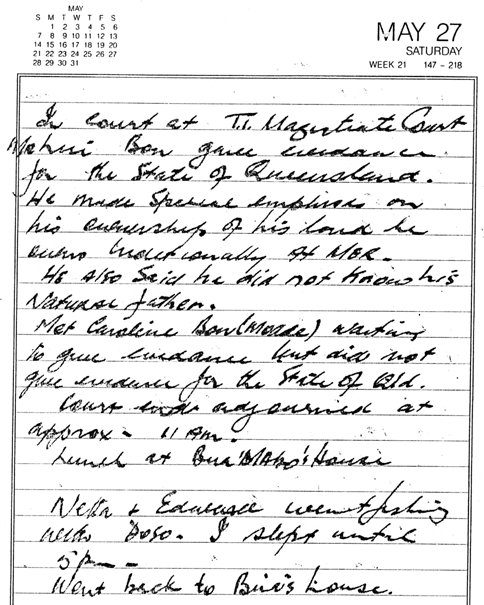 MAY
S M T W T F S
1 2 3 4 5 6
7 8 9 10 11 12 13
14 15 16 17 18 19 20
21 22 23 24 25 26 27
28 29 30 31
MAY 27
SATURDAY
WEEK 21 147 - 218
In court at T.I. Magistrate Court
Bon gave evidance
for the State of Queensland.
He made Special emphises on
his ownership of his land he
owns traditionally At MER.
He Also Said he did not know his
Natural father.
Met Caroline Bon (Modee) waiting
to give evidance but did not
give evidence for the State of Qld.
Court adjourned at
approx - 11 AM.
Lunch at House
Netta & went fishing
with I slept until
5 pm -
Went back to House.